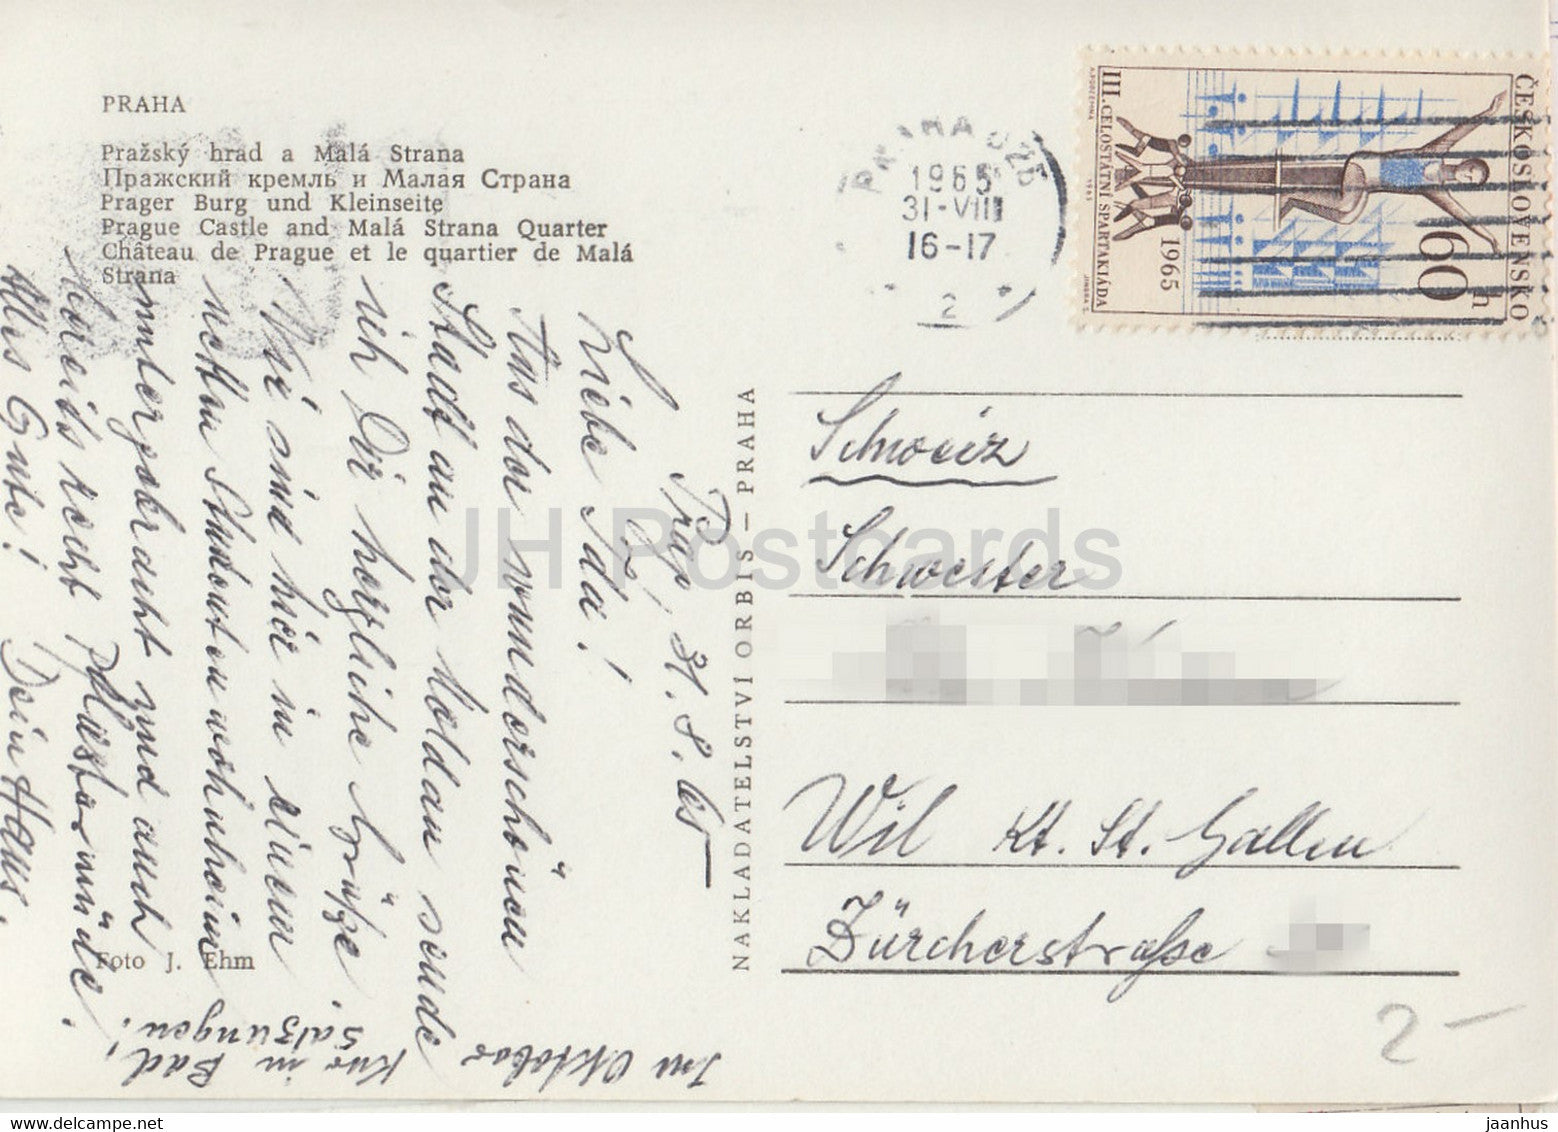 PRAHA
Pražský hrad a Malá Strana
Пражский кремль и Малая Страна
Prager Burg und Kleinseite
Prague Castle and Malá Strana Quarter
Château de Prague et le quartier de Malá
Strana
PRAHA 025
1965
31-VIII
16-17
2
ČESKOSLOVENSKO
60 h
III. CELOSTÁTNÍ SPARTAKIÁDA
1965
Prag, 31. 8. 65
Liebe Ida!
Aus der wunderschönen
Stadt an der Moldau sende
ich Dir herzliche Grüße.
Wir sind hier in einem
netten Studentenwohnheim
untergebracht und auch
bereits recht pflastermüde.
Alles Gute! Dein Hans.
Im Oktober
Kur in Bad
Salzungen!
NAKLADATELSTVÍ ORBIS – PRAHA
Schweiz
Schwester
Wil Kt. St. Gallen
Zürcherstraße
Foto J. Ehm
2 –
JH Postcards
delcampe.net
jaanhus